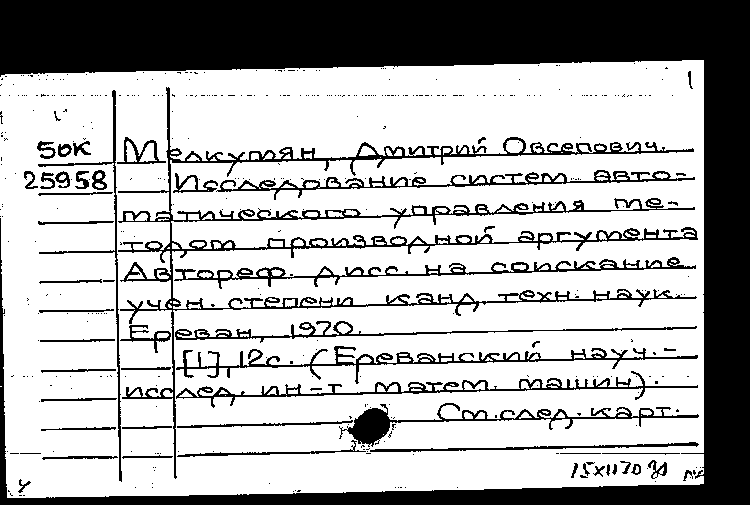 1
50К Мелкумян, Дмитрий Овсепович.
25958 Исследование систем авто-
матического управления ме-
тодом производной аргумента
Автореф. дисс. на соискание
учен. степени канд. техн. наук.
Ереван, 1970.
[1], 12с. (Ереванский науч.-
исслед. ин-т матем. машин).
См. след. карт.